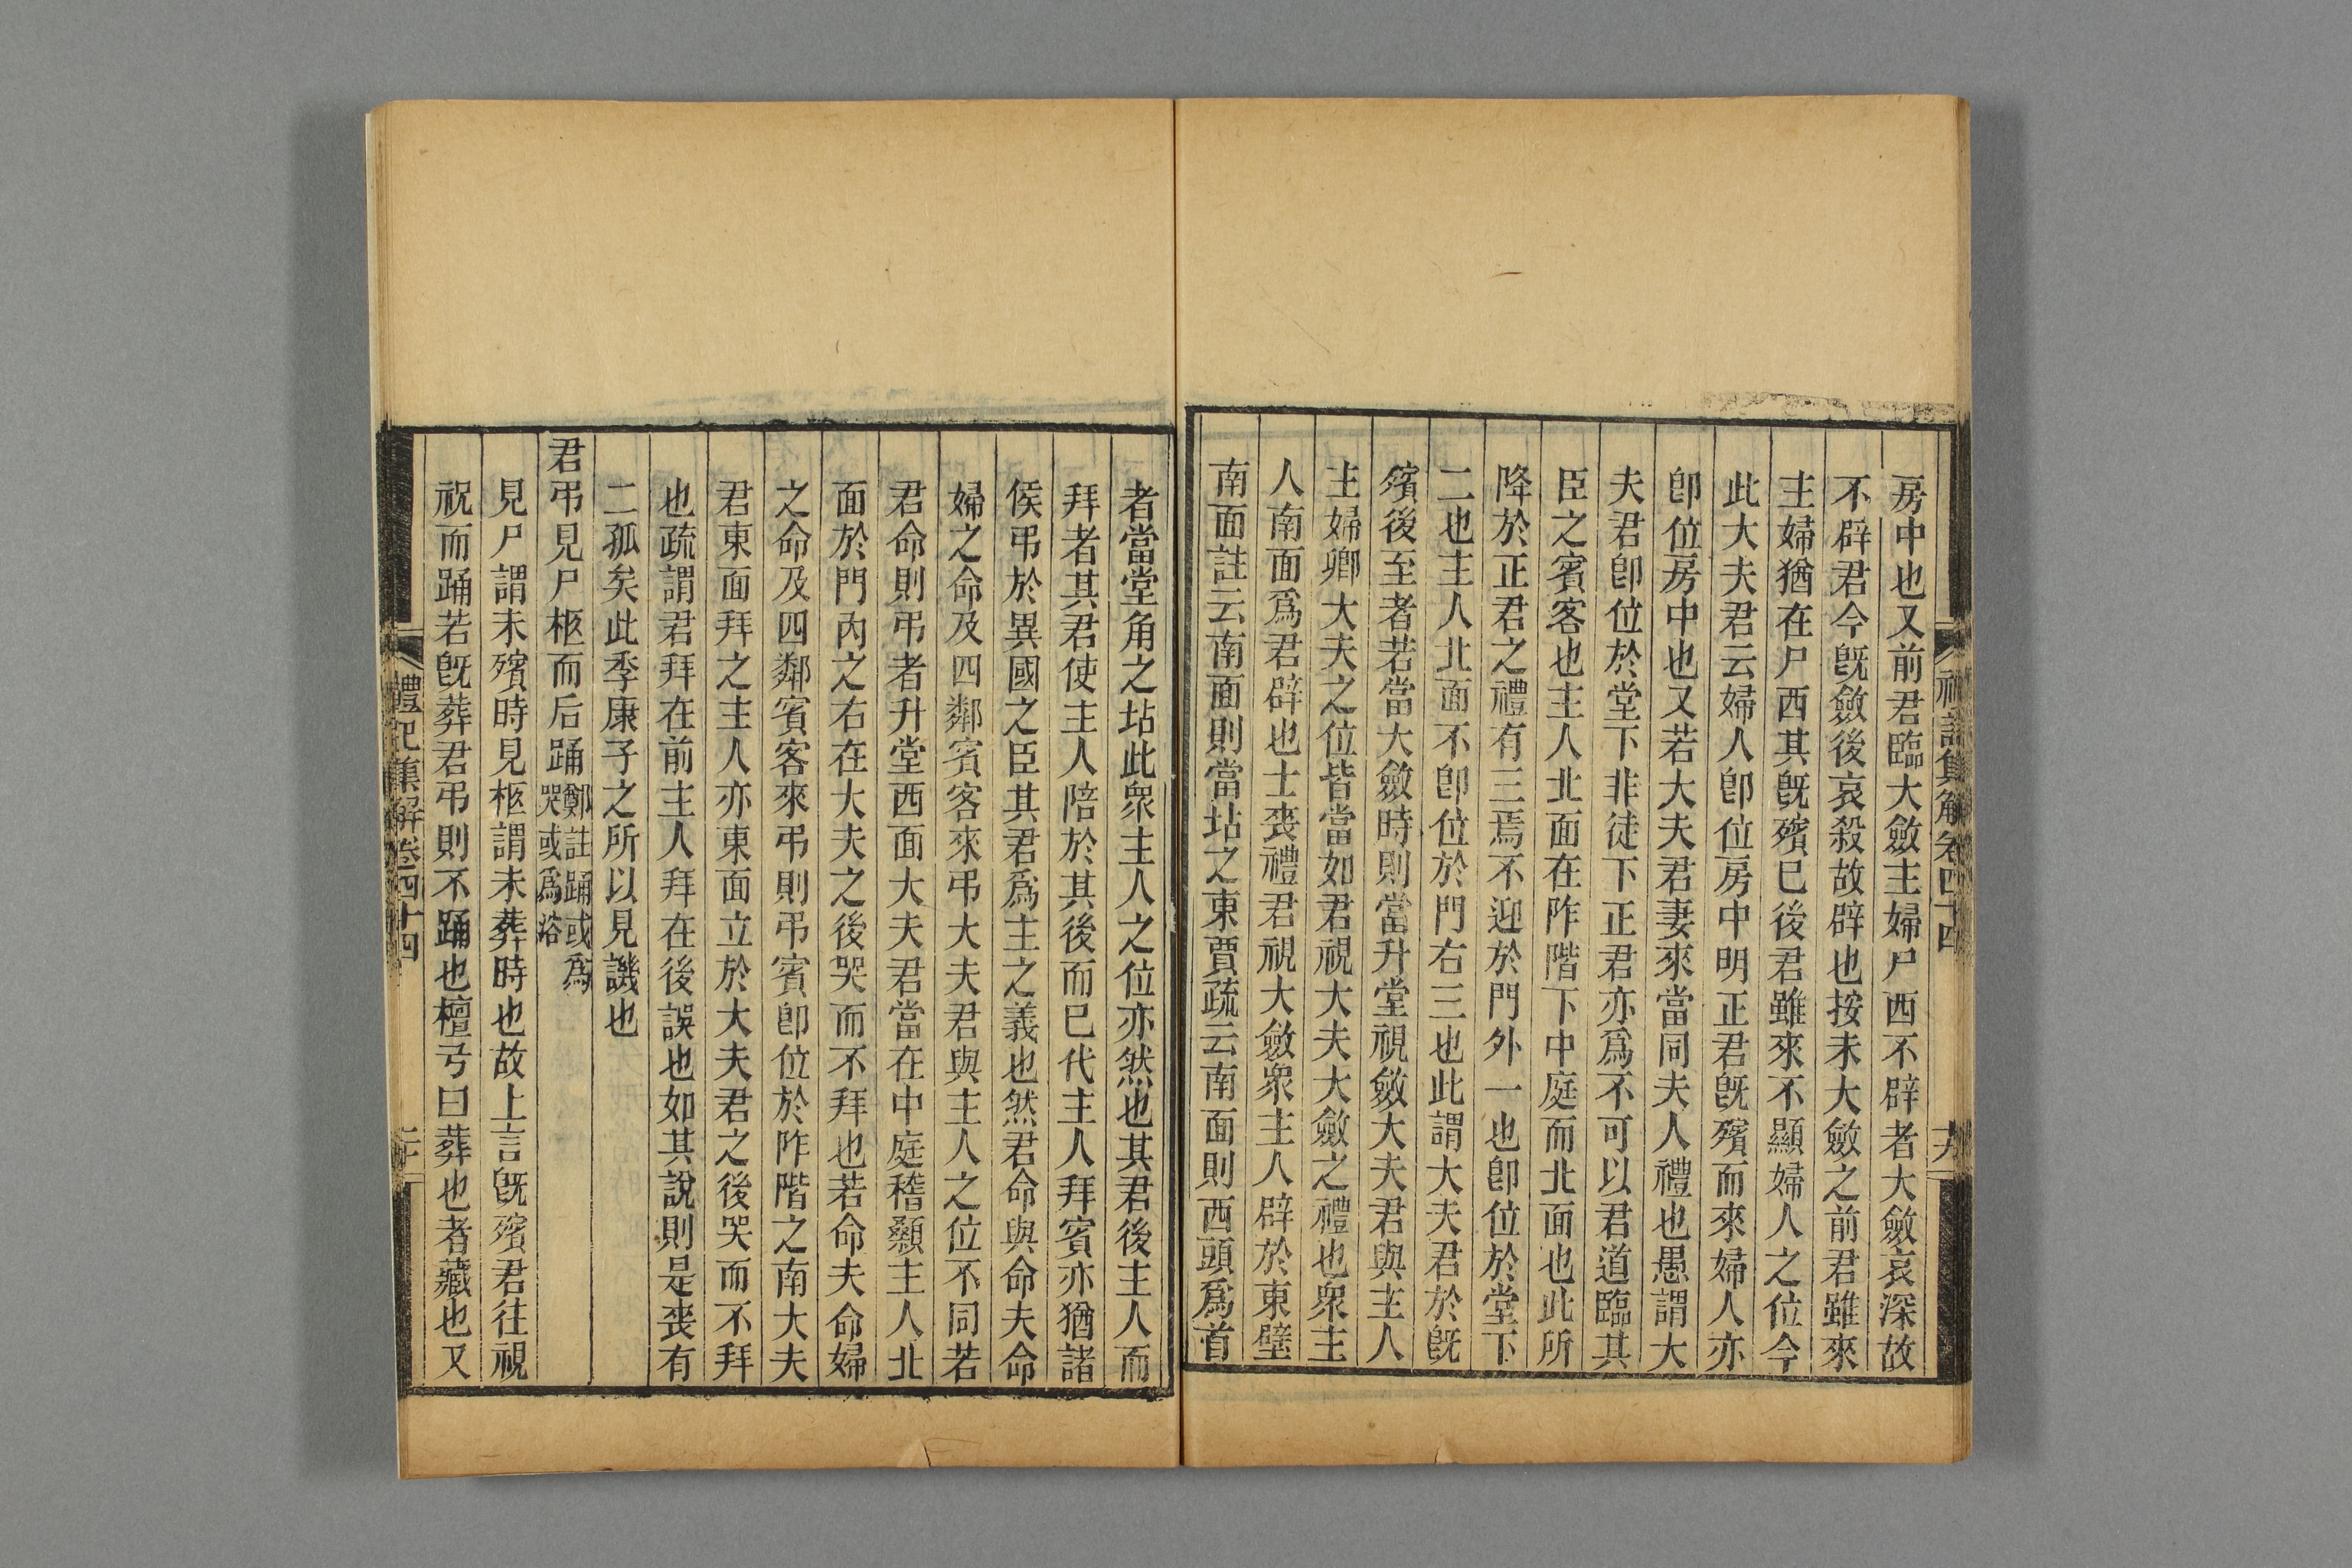 禮記集解卷四十四
十九
房中也又前君臨大斂主婦尸西不辟者大斂哀深故
不辟君今旣斂後哀殺故辟也按未大斂之前君雖來
主婦猶在尸西其旣殯已後君雖來不顯婦人之位今
此大夫君云婦人卽位房中明正君旣殯而來婦人亦
卽位房中也又若大夫君妻來當同夫人禮也愚謂大
夫君卽位於堂下非徒下正君亦爲不可以君道臨其
臣之賓客也主人北面在阼階下中庭而北面也此所
降於正君之禮有三焉不迎於門外一也卽位於堂下
二也主人北面不卽位於門右三也此謂大夫君於旣
殯後至者若當大斂時則當升堂視斂大夫君與主人
主婦卿大夫之位皆當如君視大夫大斂之禮也衆主
人南面爲君辟也士喪禮君視大斂衆主人辟於東壁
南面註云南面則當坫之東賈疏云南面則西頭爲首
者當堂角之坫此衆主人之位亦然也其君後主人而
拜者其君使主人陪於其後而已代主人拜賓亦猶諸
侯弔於異國之臣其君爲主之義也然君命與命夫命
婦之命及四鄰賓客來弔大夫君與主人之位不同若
君命則弔者升堂西面大夫君當在中庭稽顙主人北
面於門內之右在大夫之後哭而不拜也若命夫命婦
之命及四鄰賓客來弔則弔賓卽位於阼階之南大夫
君東面拜之主人亦東面立於大夫君之後哭而不拜
也疏謂君拜在前主人拜在後誤也如其說則是喪有
二孤矣此季康子之所以見譏也
君弔見尸柩而后踊鄭註踊或爲
哭或爲浴
見尸謂未殯時見柩謂未葬時也故上言旣殯君往視
祝而踊若旣葬君弔則不踊也檀弓曰葬也者藏也又
禮記集解卷四十四
二十